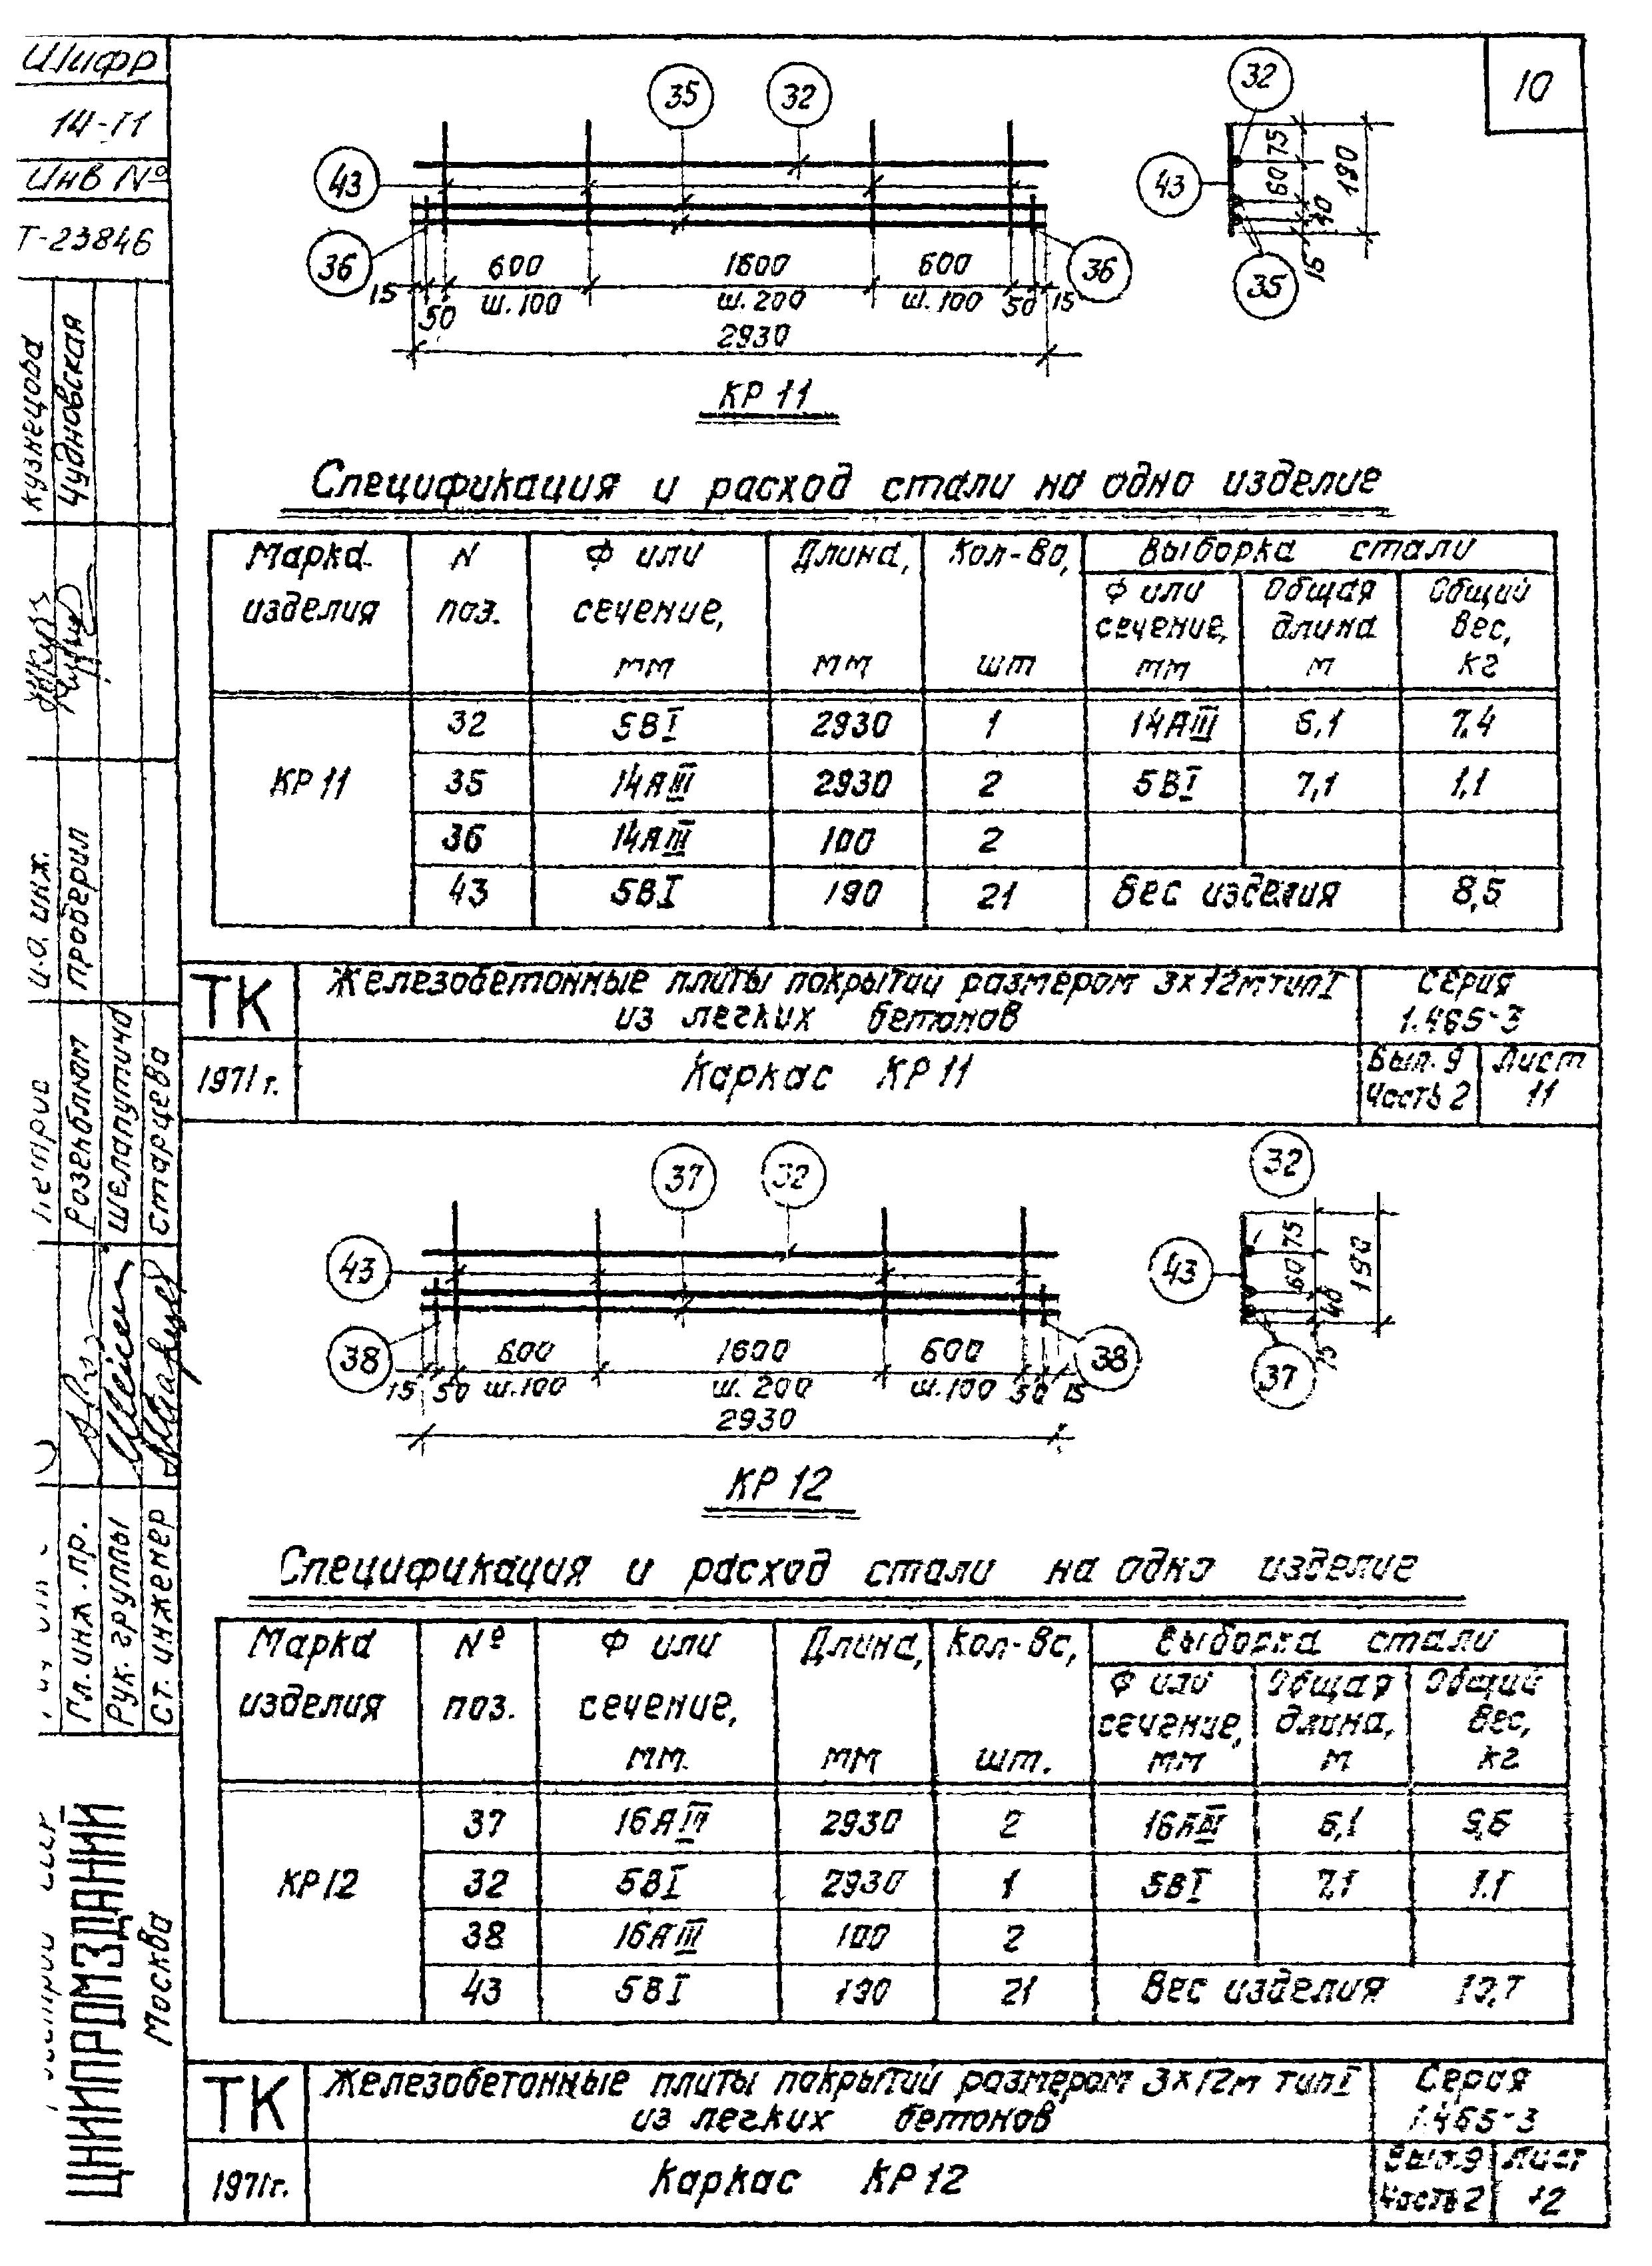 Шифр
14-П
Инв №
Т-23846
10
35 32
43
36 36
600 1600 600
15 50 ш.100 ш.200 ш.100 50 15
2930
КР 11
32
43
35
75
60
40
15
190
Спецификация и расход стали на одно изделие
Марка изделия | N поз. | Ф или сечение, мм | Длина, мм | Кол-во, шт | Выборка стали
Ф или сечение, мм | Общая длина м | Общий вес, кг
КР 11 | 32 | 5ВI | 2930 | 1 | 14АIII | 6,1 | 7,4
35 | 14АIII | 2930 | 2 | 5ВI | 7,1 | 1,1
36 | 14АIII | 100 | 2
43 | 5ВI | 190 | 21 | Вес изделия | 8,5
ТК
Железобетонные плиты покрытий размером 3х12м тип I
из легких бетонов
Серия
1.465-3
1971 г.
Каркас КР 11
Вып. 9
Часть 2
Лист
11
37 32
43
38 38
600 1600 600
15 50 ш.100 ш. 200 ш.100 50 15
2930
КР 12
32
43
37
75
60
40
15
190
Спецификация и расход стали на одно изделие
Марка изделия | Nº поз. | Ф или сечение, мм | Длина, мм | Кол-во, шт. | Выборка стали
Ф или сечение, мм | Общая длина, м | Общий вес, кг
КР12 | 37 | 16АIII | 2930 | 2 | 16АIII | 6,1 | 9,6
32 | 5ВI | 2930 | 1 | 5ВI | 7,1 | 1,1
38 | 16АIII | 100 | 2
43 | 5ВI | 190 | 21 | Вес изделия | 10,7
ТК
Железобетонные плиты покрытий размером 3х12м тип I
из легких бетонов
Серия
1.465-3
1971г.
Каркас КР 12
Вып.9
Часть 2
Лист
12
Кузнецова
Чудновская
и.о. инж.
Проверил
Розенблюм
Шелапутина
Старцева
Гл. инж. пр.
Рук. группы
Ст. инженер
ЦНИИПРОМЗДАНИЙ
Москва